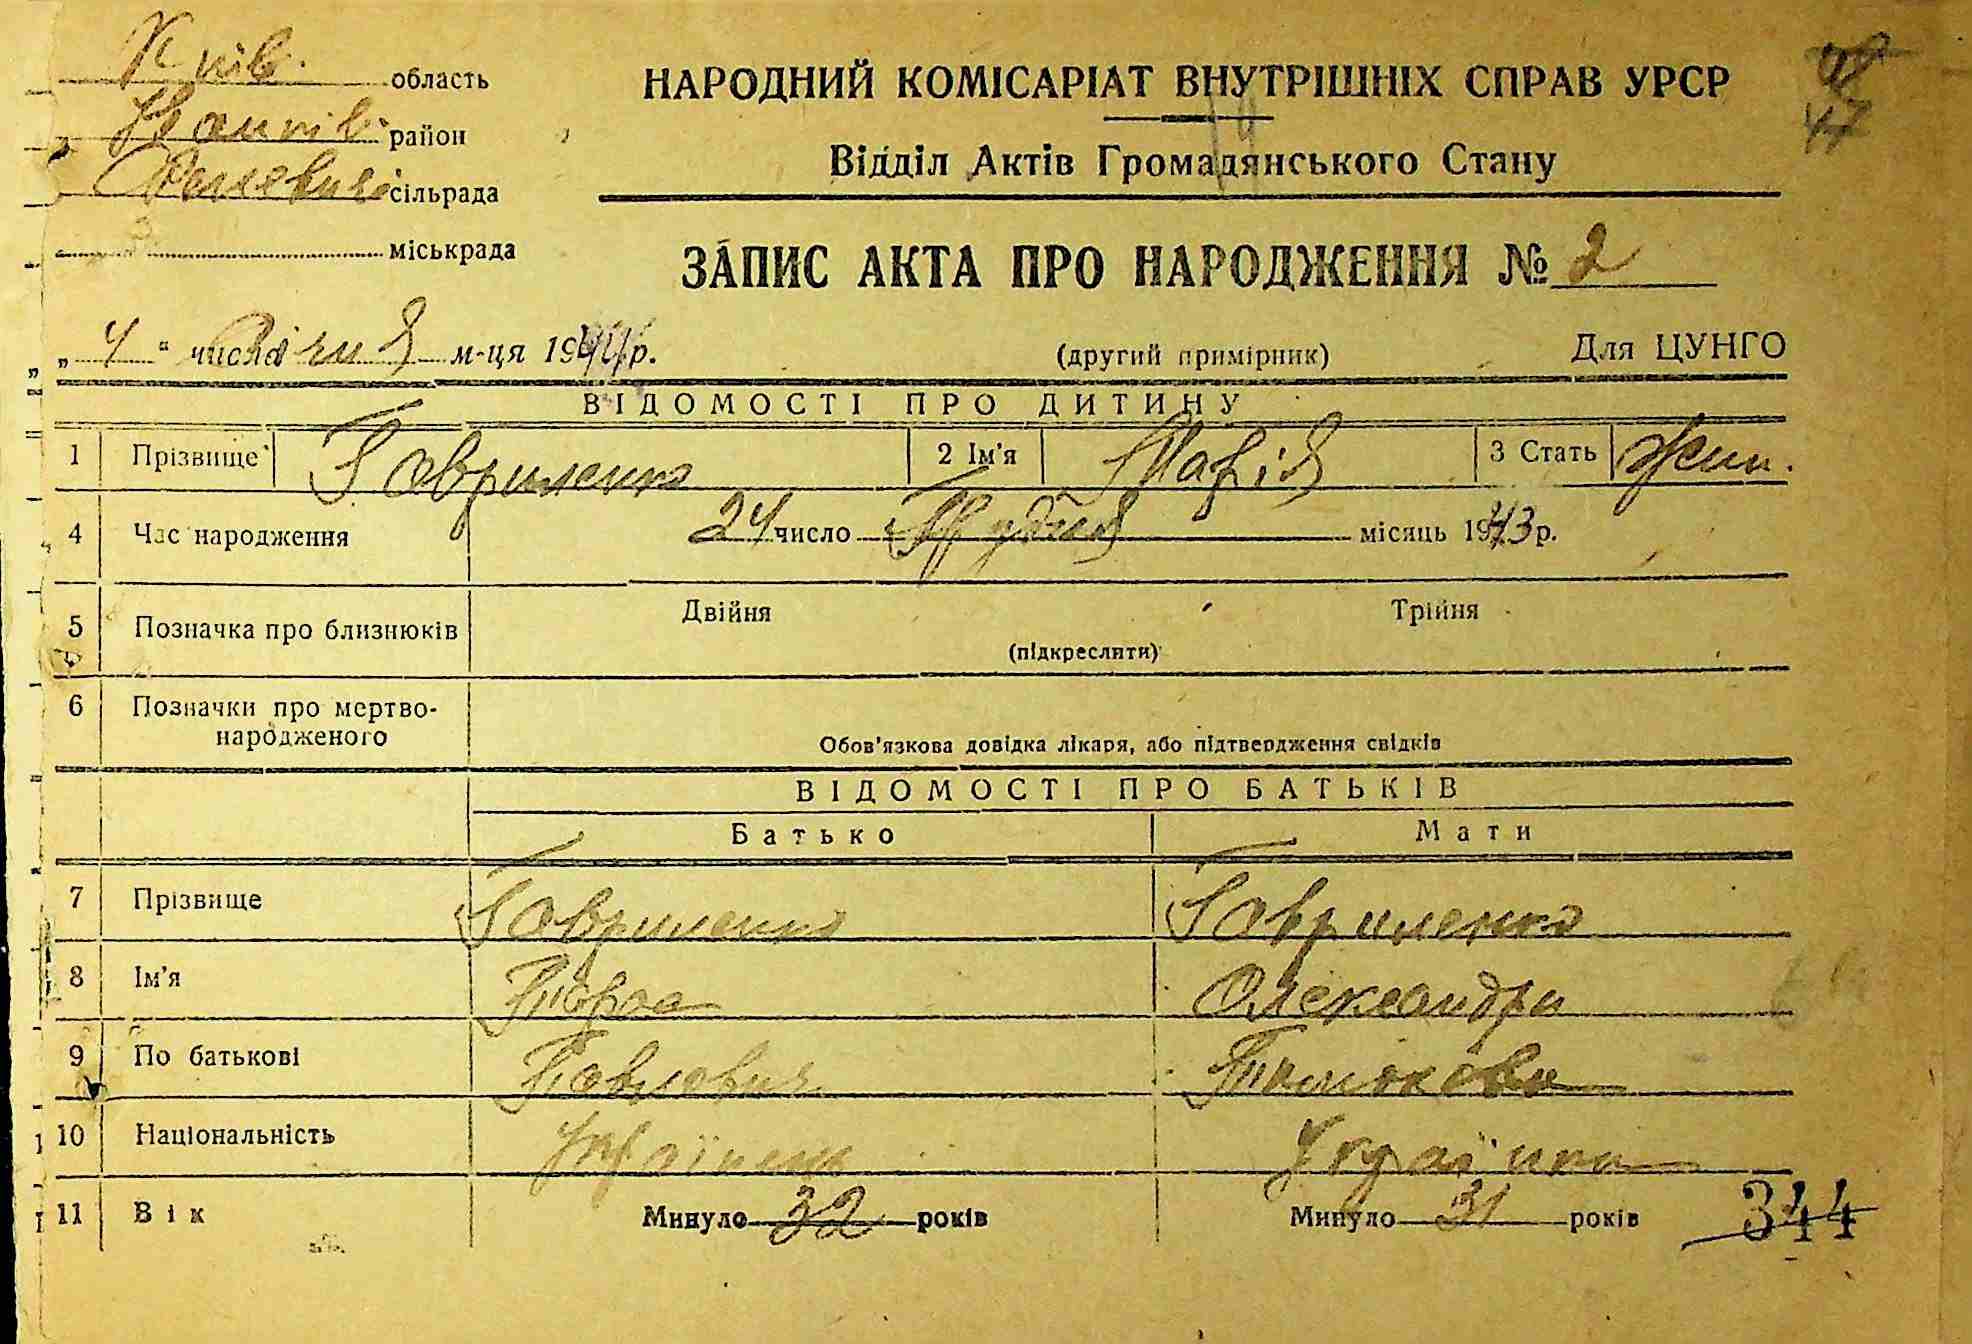 Київ. область
район
сільрада
міськрада
НАРОДНИЙ КОМІСАРІАТ ВНУТРІШНІХ СПРАВ УРСР
Відділ Актів Громадянського Стану
47
ЗАПИС АКТА ПРО НАРОДЖЕННЯ № 2
„ 4 “ числа Січня м-ця 1944 р.
(другий примірник)
Для ЦУНГО
ВІДОМОСТІ ПРО ДИТИНУ
1 Прізвище Гавриленко 2 Ім'я Марія 3 Стать Жін.
4 Час народження 24 число Грудня місяць 1943 р.
5 Позначка про близнюків Двійня Трійня
(підкреслити)
6 Позначки про мертво-
народженого
Обов'язкова довідка лікаря, або підтвердження свідків
ВІДОМОСТІ ПРО БАТЬКІВ
Батько Мати
7 Прізвище Гавриленко Гавриленко
8 Ім'я Тарас Олександра
9 По батькові Павлович
10 Національність Українець Українка
11 Вік Минуло 32 років Минуло 31 років
344